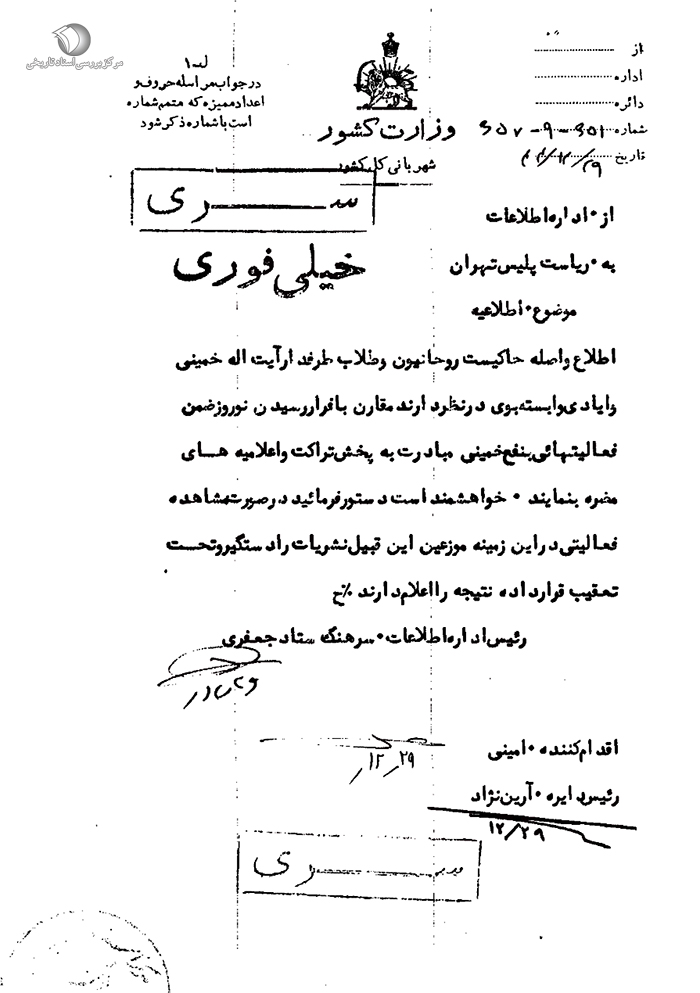 مرکز بررسی اسناد تاریخی
در جواب مراسله حروف و
اعداد ممیزه که متمم شماره
است با شماره ذکر شود
وزارت کشور
شهربانی کل کشور
از
اداره
دائره
شماره ۳۵۱-۹-۳۵۷
تاریخ ۲۹/۱۲/
سری
خیلی فوری
از ۰ اداره اطلاعات
به ۰ ریاست پلیس تهران
موضوع ۰ اطلاعیه
اطلاع واصله حاکیست روحانیون وطلاب طرفدار آیت اله خمینی
وایادی وابسته بوی درنظردارند مقارن با فرارسیدن نوروز ضمن
فعالیتهائی بنفع خمینی مبادرت به پخش تراکت واعلامیه های
مضره بنمایند ۰ خواهشمند است دستور فرمائید در صورت مشاهده
فعالیتی در این زمینه موزعین این قبیل نشریات را دستگیر وتحت
تعقیب قرار داده نتیجه را اعلام دارند %ح
رئیس اداره اطلاعات ۰ سرهنگ ستاد جعفری
اقدام کننده ۰ امینی
۱۲/۲۹
رئیس دایره ۰ آرین نژاد
۱۲/۲۹
سری